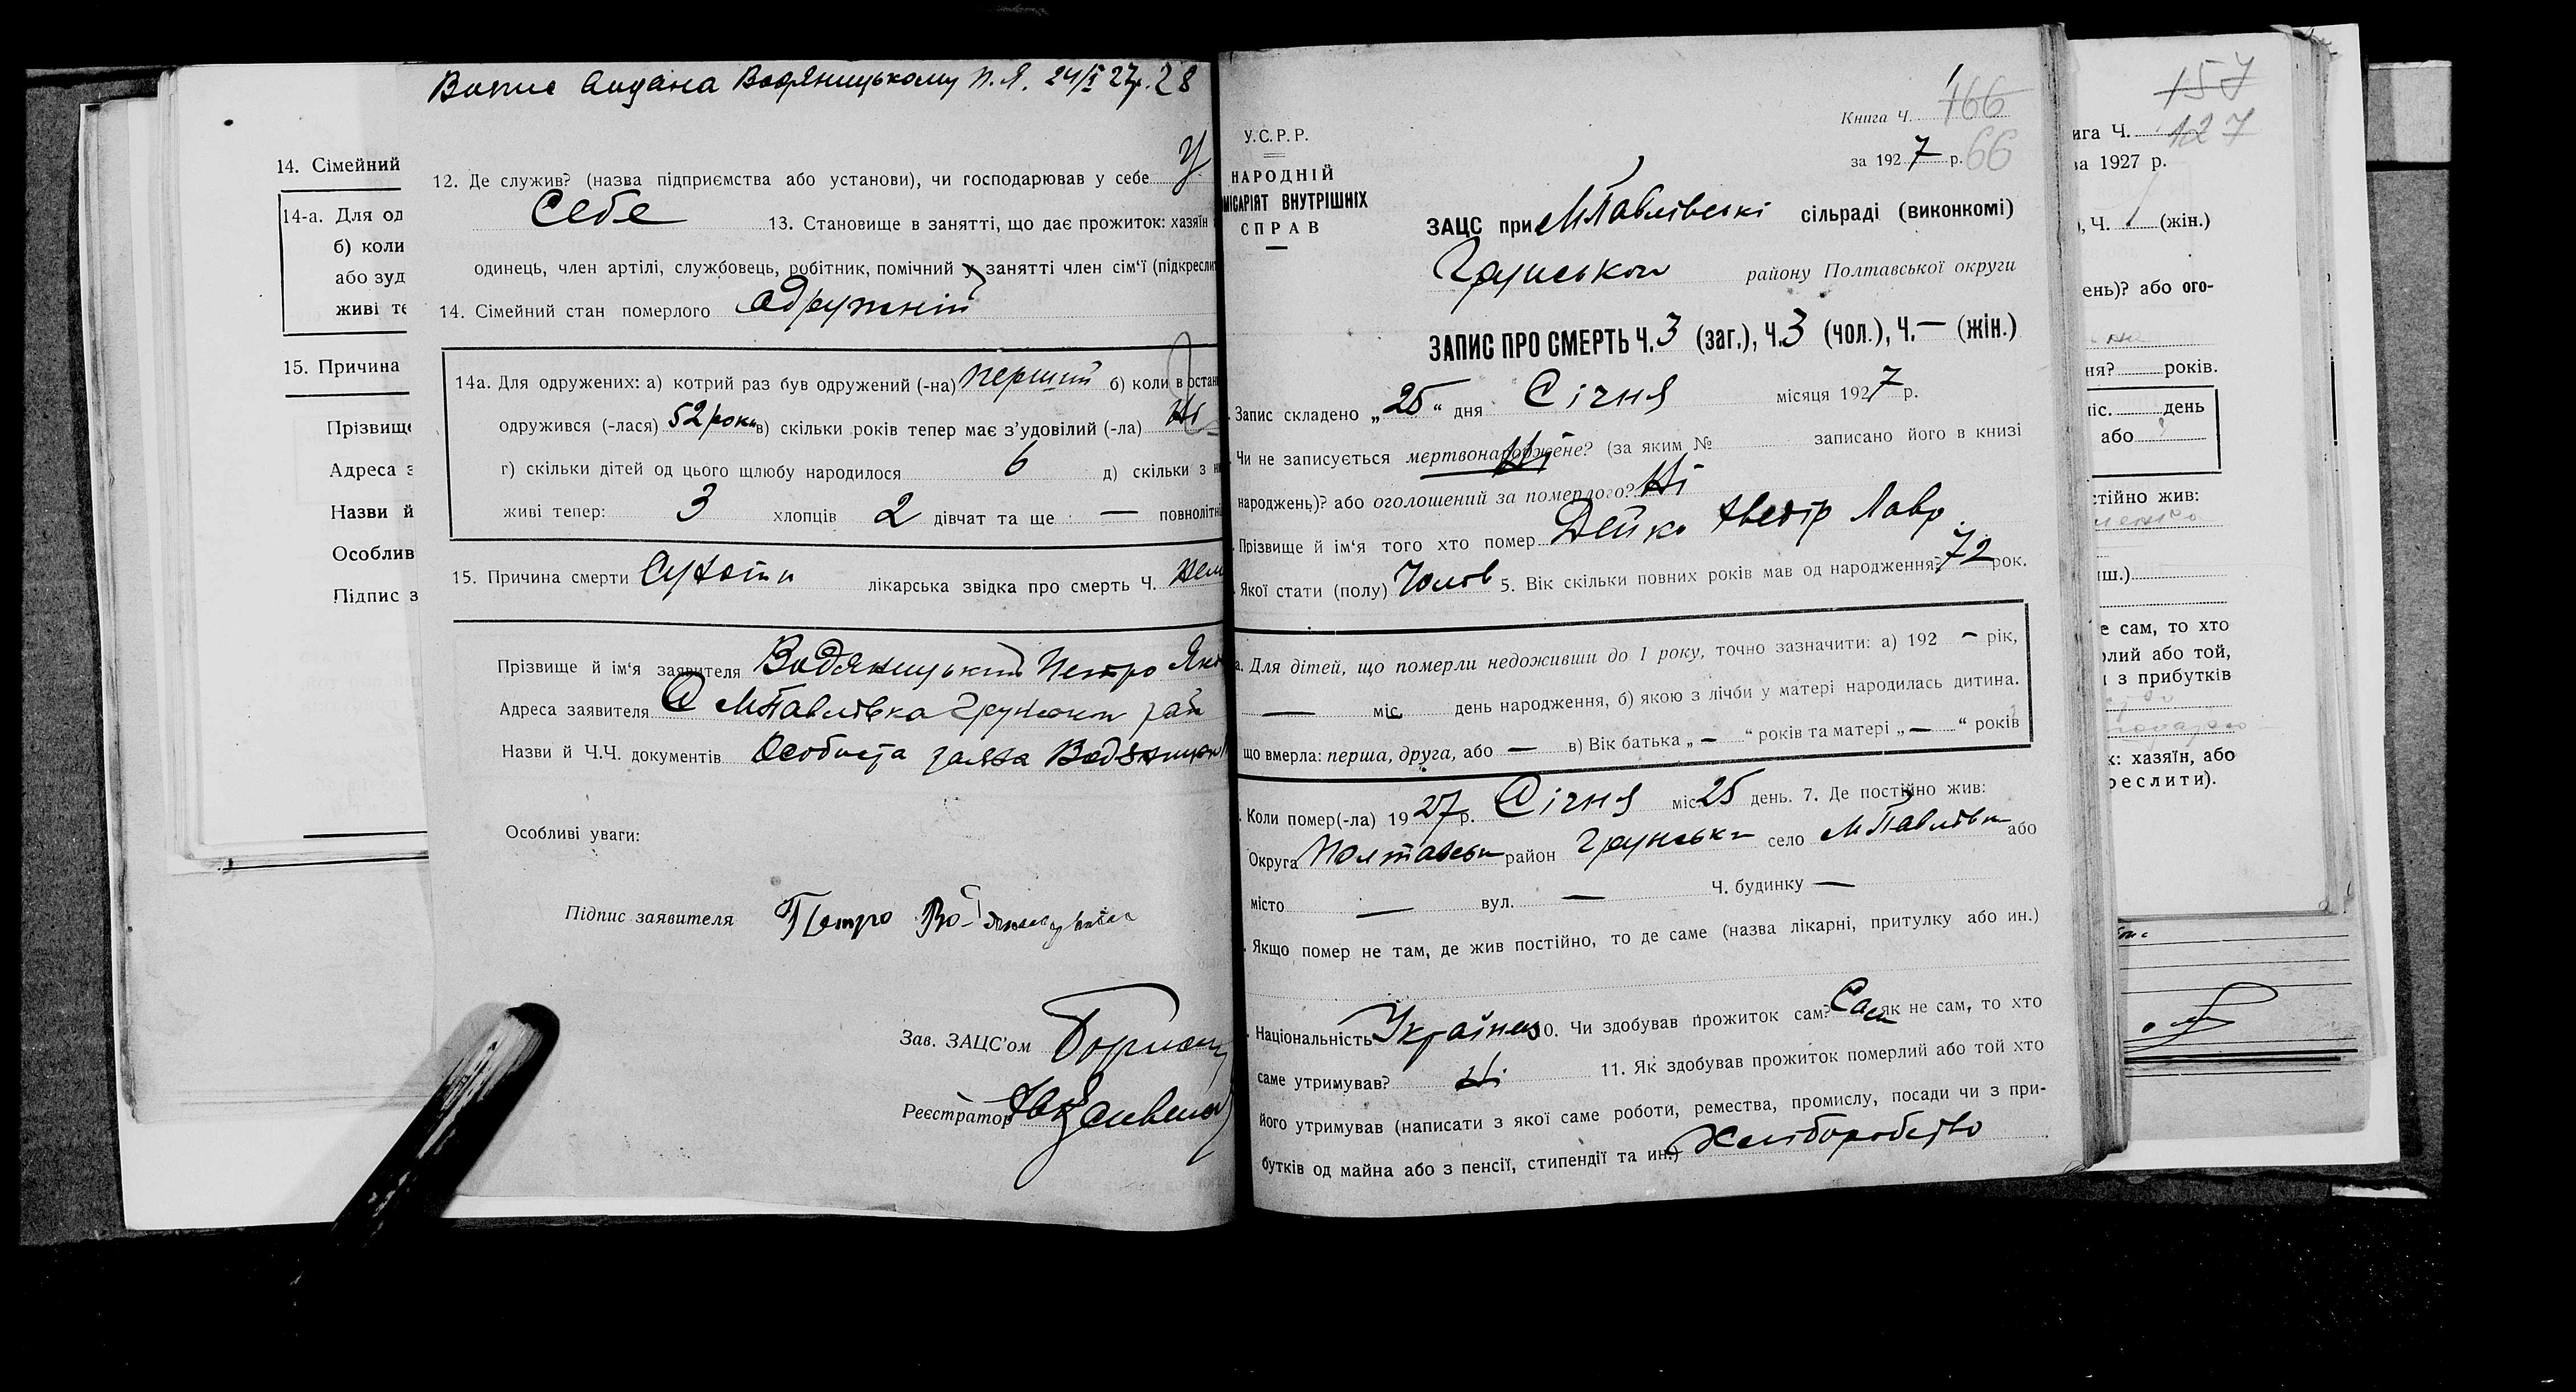 14. Сімейний
14-а. Для од
б) коли
або зуд
живі те
15. Причина
Прізвище
Адреса з
Назви й
Особлив
Підпис з
Випис видана Водяницькому П. Я. 24/I 27р. 28
12. Де служив? (назва підприємства або установи), чи господарював у себе У
себе 13. Становище в занятті, що дає прожиток: хазяїн
одинець, член артілі, службовець, робітник, помічний у занятті член сім'ї (підкресли
14. Сімейний стан померлого Одружній
14а. Для одружених: а) котрий раз був одружений (-на) перший б) коли востан
одружився (-лася) 52 роки в) скільки років тепер має з'удовілий (-ла) Ні
г) скільки дітей од цього щлюбу народилося 6 д) скільки з н
живі тепер: 3 хлопців 2 дівчат та ще — повнолітні
15. Причина смерти Сухоти лікарська звідка про смерть Ч. нема
Прізвище й ім'я заявителя Водяницький Петро Яко
Адреса заявителя С МПавлівка Грунськи рай
Назви й Ч.Ч. документів Особиста заява Водяницьк
Особливі уваги:
Підпис заявителя Петро
Зав. ЗАЦС'ом
Реєстратор
Книга Ч. 166
за 1927 р. 66
У.С.Р.Р.
НАРОДНІЙ
МІСАРІЯТ ВНУТРІШНІХ
СПРАВ
ЗАЦС при МПавлівські сільраді (виконкомі)
Грунськом району Полтавської округи
ЗАПИС ПРО СМЕРТЬ Ч. 3 (заг.), Ч. 3 (чол.), Ч. — (жін.)
Запис складено „25" дня Січня місяця 1927 р.
Чи не записується мертвонароджене? Ні (за яким № записано його в книзі
народжень)? або оголошений за померлого? Ні
Прізвище й ім'я того хто помер Дейко Хведір Лавр.
Якої стати (полу) Чолов 5. Вік скільки повних років мав од народження? 72 рок.
а. Для дітей, що померли недоживши до 1 року, точно зазначити: а) 192 — рік,
— міс. день народження, б) якою з лічби у матері народилась дитина.
що вмерла: перша, друга, або — в) Вік батька „—" років та матері „—" років
Коли помер(-ла) 1927 р. Січня міс. 25 день. 7. Де постійно жив:
Округа Полтавськ район Грунськи село МПавлівки або
місто — вул. — Ч. будинку —
Якщо помер не там, де жив постійно, то де саме (назва лікарні, притулку або ин.)
Національність Українец 10. Чи здобував прожиток сам? Сам як не сам, то хто
саме утримував? Ні 11. Як здобував прожиток померлий або той хто
його утримував (написати з якої саме роботи, ремества, промислу, посади чи з при-
бутків од майна або з пенсії, стипендії та ин.) Хліборобство
157
ига Ч. 127
за 1927 р.
), Ч. (жін.)
ень)? або ого-
ня? років.
міс. день
або
стійно жив:
иш.)
е сам, то хто
рлий або той,
и з прибутків
к: хазяїн, або
реслити).